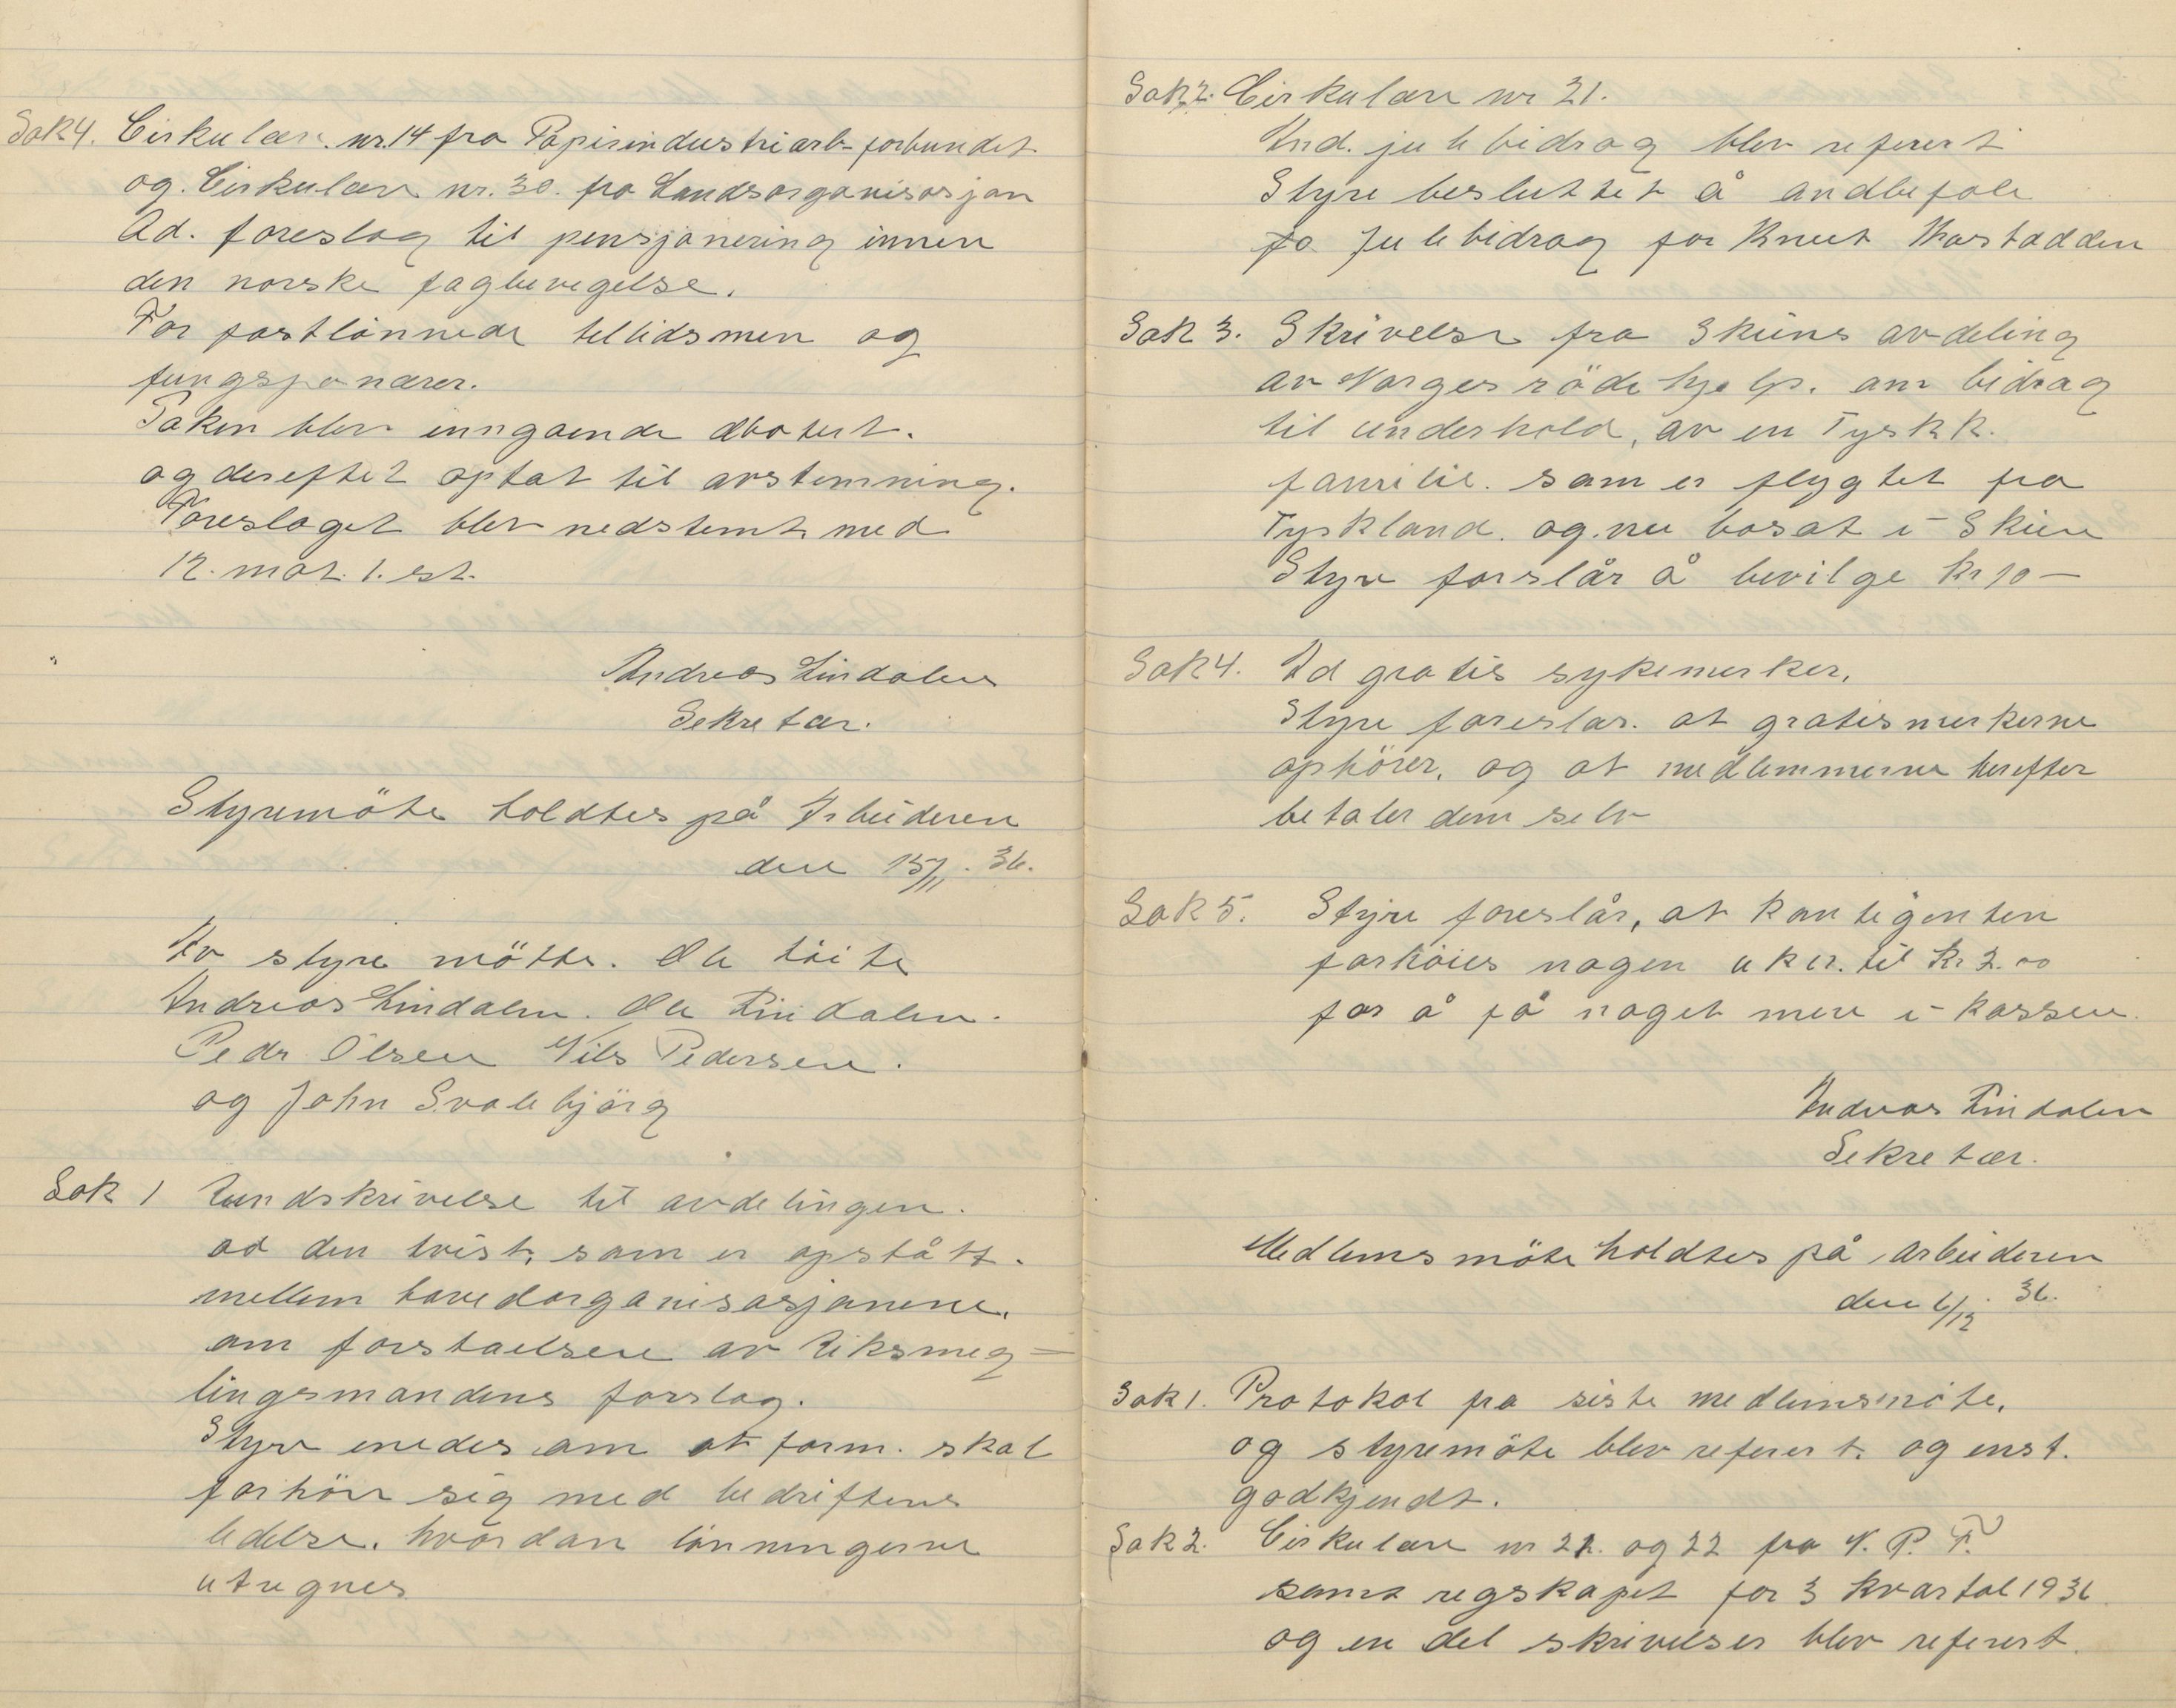 Sak 4. Cirkulære. nr. 14 fra Papirindustriarb-forbundet
og. Cirkulære nr. 30. fra Landsorganisasjon
Ad. foreslag til pensjonering innen
den norske fagbevegelse.
For fastlönnede tillidsmen og
fungsjonærer.
Saken blev inngaende dbatert.
og dereftet optat til avstemning.
Foreslaget blev nedstemt med
12. mot. 1. st.
Andreas Lindalen
Sekretær.
Styremöte holdtes på Arbeideren
den 15/11. 36.
Av styre mötte. Ole
Andreas Lindalen. Ole Lindalen.
Pedr Olsen Nils Pedersen.
og John Svalebjörg
Sak 1 Rundskrivelse til avdelingen.
ad den tvist, som er opstått.
mellem hovedorganisasjonene.
om forstaelsen av Riksmeg=
lingsmandens forslag.
Styre enedes om at form. skal
forhöre sig med bedriftens
ledelse. hvordan lönningerne
utregnes
Sak 2. Cirkulære nr 21.
And. julebidrag blev referert
Styre besluttet å andbefale
fo Julebidrag for Knut
Sak 3. Skrivelse fra Skiens avdeling
av Norges röde hjelp. om bidrag
til underhold, av en Tyskk.
familie. som er flygtet fra
Tyskland. og. nu bosat i Skien
Styre forslår å bevilge kr 10 —
Sak 4. Ad gratis sykemerker.
Styre foreslar. at gratismerkerne
ophörer. og at medlemmerne herefter
betaler dem selv
Sak 5. Styre foreslår, at kontigenten
forhöies nogen uker. til kr 2.00
for å få noget mere i kassen.
Andreas Lindalen
Sekretær.
Medlemsmöte holdtes på Arbeideren
den 6/12. 36.
Sak 1. Protokol fra siste medlemsmöte.
og styremöte blev referert. og enst.
godkjendt.
Sak 2. Cirkulære nr 21. og 22 fra N. P. F.
samt regskapet for 3 kvartal 1936
og en del skrivelser blev referert.